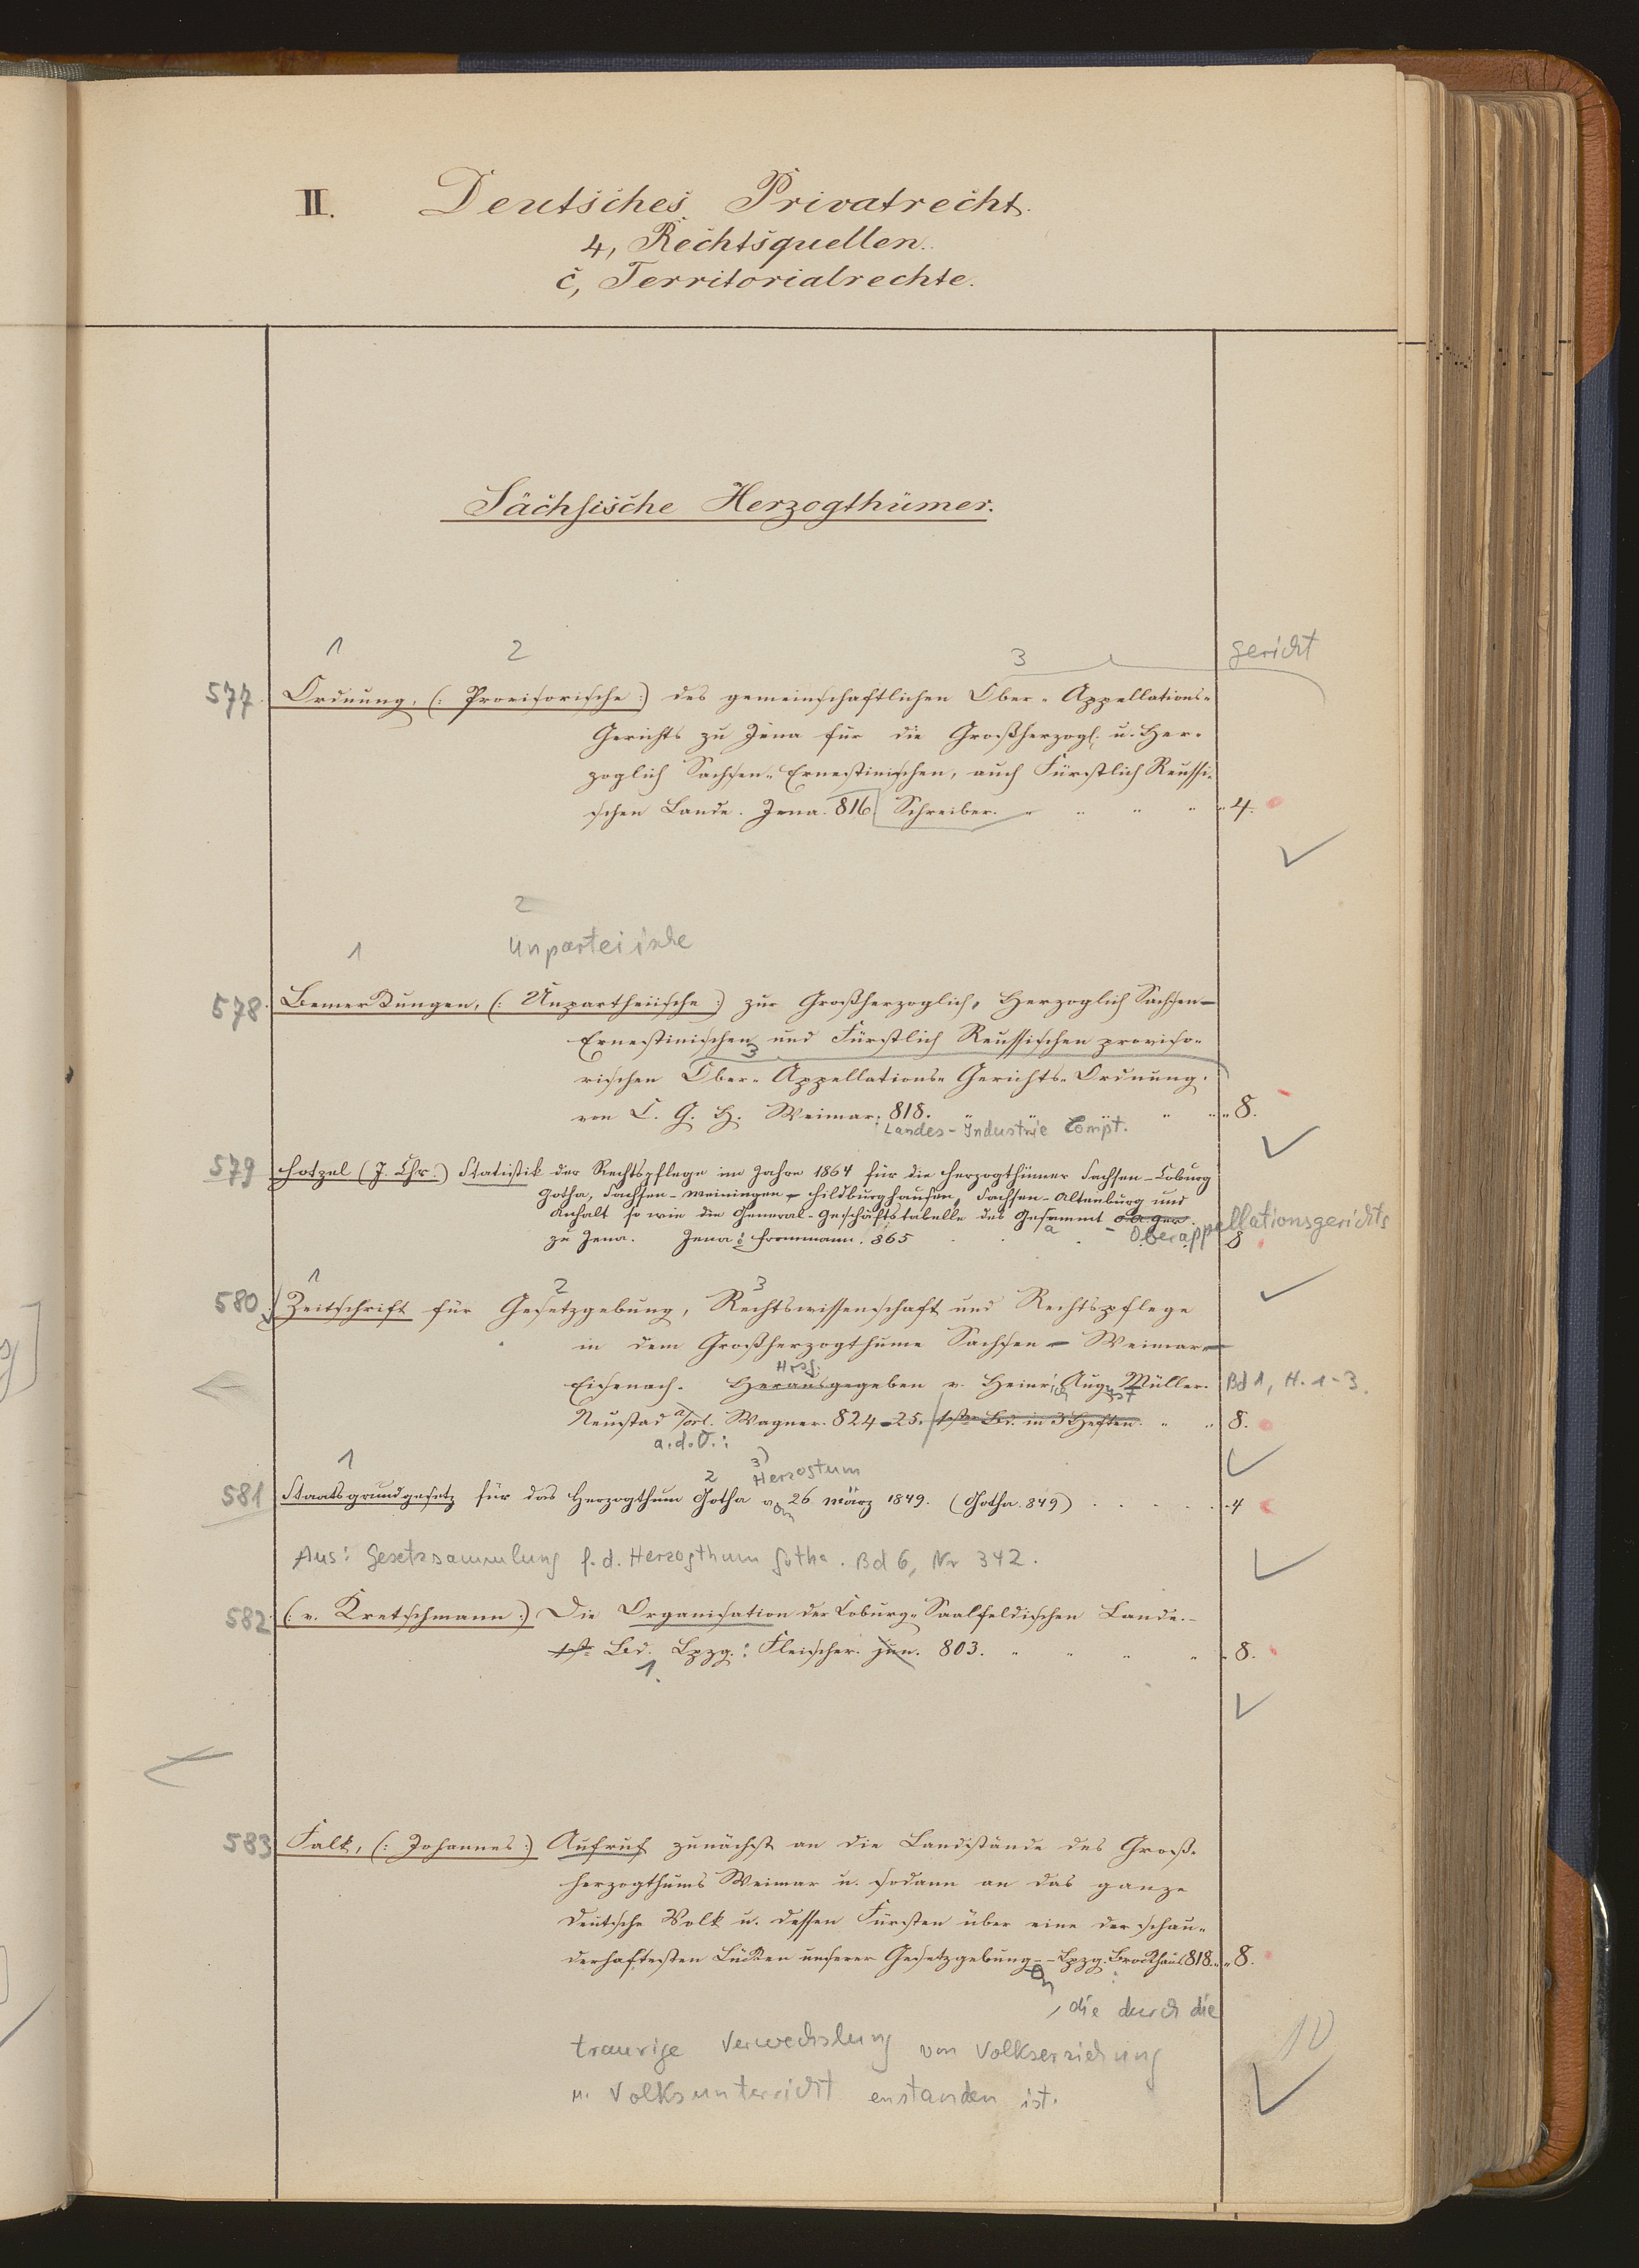 II. Deutsches Privatrecht.
4, Rechtsquellen.
c, Territorialrechte.
Sächsische Herzogthümer.
1 2 3 gericht
577. Ordnung, (: Provisorische :) des gemeinschaftlichen Ober-Appellations-
Gerichts zu Jena für die Großherzogl. u. Her-
zoglich Sachsen-Ernestinischen, auch Fürstlich Reussi-
schen Lande. Jena. 816 Schreiber. 4.
2
1 Unparteiische
578. Bemerkungen, (: Unpartheiische :) zur Großherzoglich, Herzoglich Sachsen-
Ernestinischen und Fürstlich Reussischen proviso-
3
rischen Ober-Appellations-Gerichts-Ordnung.
von C. G. H. Weimar: 818. 8.
Landes-Industrie Compt.
579 Hotzel (J. Chr.) Statistik der Rechtspflege im Jahre 1864 für die Herzogthümer Sachsen-Coburg
Gotha, Sachsen-Meiningen-Hildburghausen, Sachsen-Altenburg und
Anhalt so wie die General-Geschäftstabelle des Gesammt-O.A.Ger.
a - Oberappellationsgerichts
zu Jena. Jena: Frommann. 865 8
1 2 3
580. Zeitschrift für Gesetzgebung, Rechtswissenschaft und Rechtspflege
in dem Großherzogthume Sachsen-Weimar-
Hrsg.
Eisenach. Herausgegeben v. Heinr. Aug. Müller. Bd 1, H. 1-3.
ich ust
Neustad a/Orl. Wagner. 824-25. 1ster Bd. in 3 Heften. 8.
a.d.O.:
1 2 3) Herzogtum
581 Staatsgrundgesetz für das Herzogthum Gotha v. 26 März 1849. (Gotha. 849) 4
Aus: Gesetzsammlung f. d. Herzogthum Gotha. Bd 6, Nr 342.
582. (: v. Kretschmann :) Die Organisation der Coburg-Saalfeldischen Lande.-
1st. Bd. Lpzg.: Fleischer. jun. 803. 8.
1.
583 Falk, (: Johannes :) Aufruf zunächst an die Landstände des Groß-
herzogthums Weimar u. sodann an das ganze
deutsche Volk u. dessen Fürsten über eine der schau-
derhaftesten Lücken unserer Gesetzgebung-- Lpzg. Brockhaus 818. 8.
, die durch die
traurige Verwechslung von Volkserziehung
u. Volksunterricht enstanden ist.
10